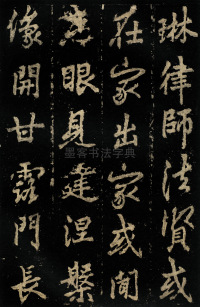 琳律師法賢或
在家出家或聞
惠眼見建涅槃
像開甘露門長
墨客书法字典